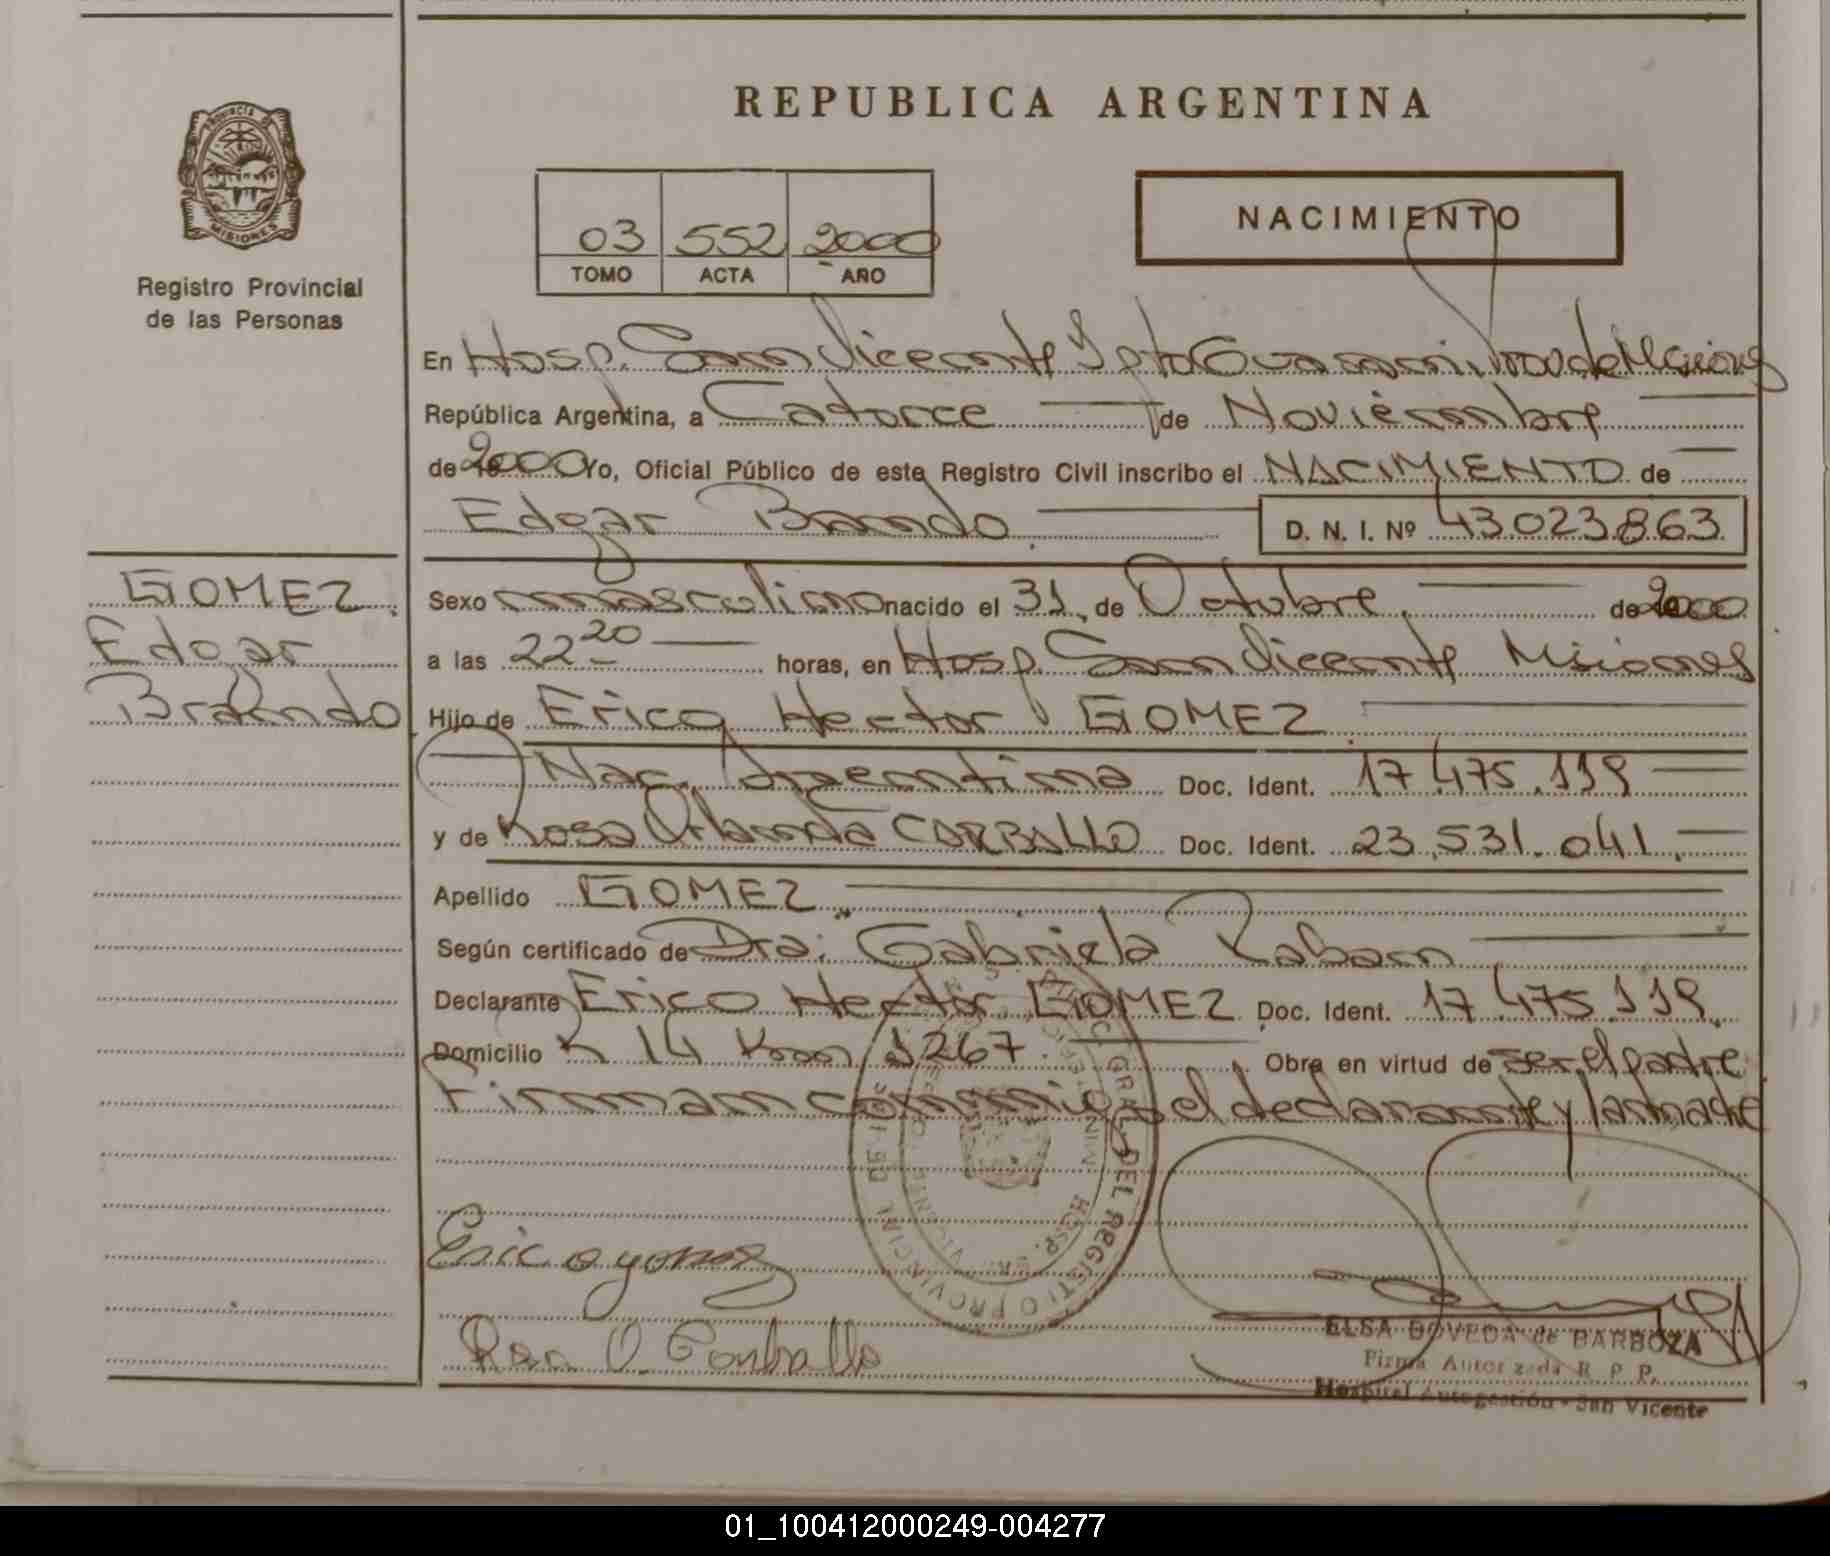 REPUBLICA ARGENTINA
PROVINCIA D MISIONES
Registro Provincial
de las Personas
03 552 2000
TOMO ACTA AÑO
NACIMIENTO
En Hosp. San Vicente Dpto Guarani, Prov de Misiones
República Argentina, a Catorce de Noviembre
de 2000 Yo, Oficial Público de este Registro Civil inscribo el NACIMIENTO de
Edgar Brando D. N. I. Nº 43.023.863
GOMEZ
Edgar
Brando
Sexo masculino nacido el 31 de Octubre de 2000
a las 22 20 horas, en Hosp. San Vicente Misiones
Hijo de Erico Hector GOMEZ
Nac. Argentina Doc. Ident. 17.475.119
y de Rosa Orlanda CARBALLO Doc. Ident. 23.531.041
Apellido GOMEZ
Según certificado de Dra: Gabriela
Declarante Erico Hector GOMEZ Doc. Ident. 17.475.119
Domicilio R 14 Km 1267 Obra en virtud de ser el padre
Firman conmigo el declarante y la madre
GRAL. DEL REGISTRO PROVINCIAL
HOSP. SAN VICENTE
Erico gomez
Rosa O. Carballo
ELSA BOVEDA de BARBOZA
Firma Autorizada R. P. P.
Hospital Autogestión - San Vicente
01_100412000249-004277